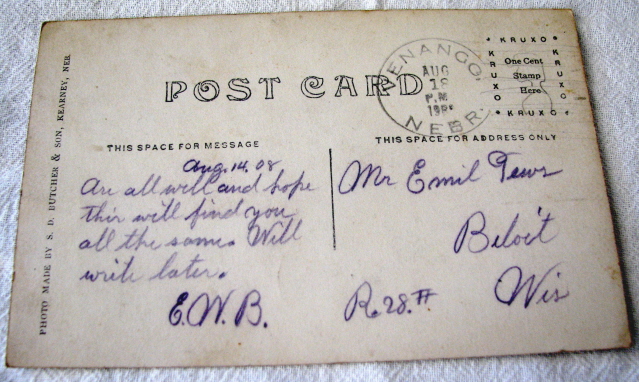 POST CARD
VENANGO
AUG
18
P.M.
NEBR.
* KRUXO *
KRUXO
One Cent
Stamp
Here
KRUXO
* KRUXO *
THIS SPACE FOR MESSAGE
THIS SPACE FOR ADDRESS ONLY
Aug. 14. 08
Are all well and hope
this will find you
all the same. Will
write later.
E.W.B.
Mr Emil Tews
Beloit
Wis
R. 28. #
PHOTO MADE BY S. D. BUTCHER & SON, KEARNEY, NEB